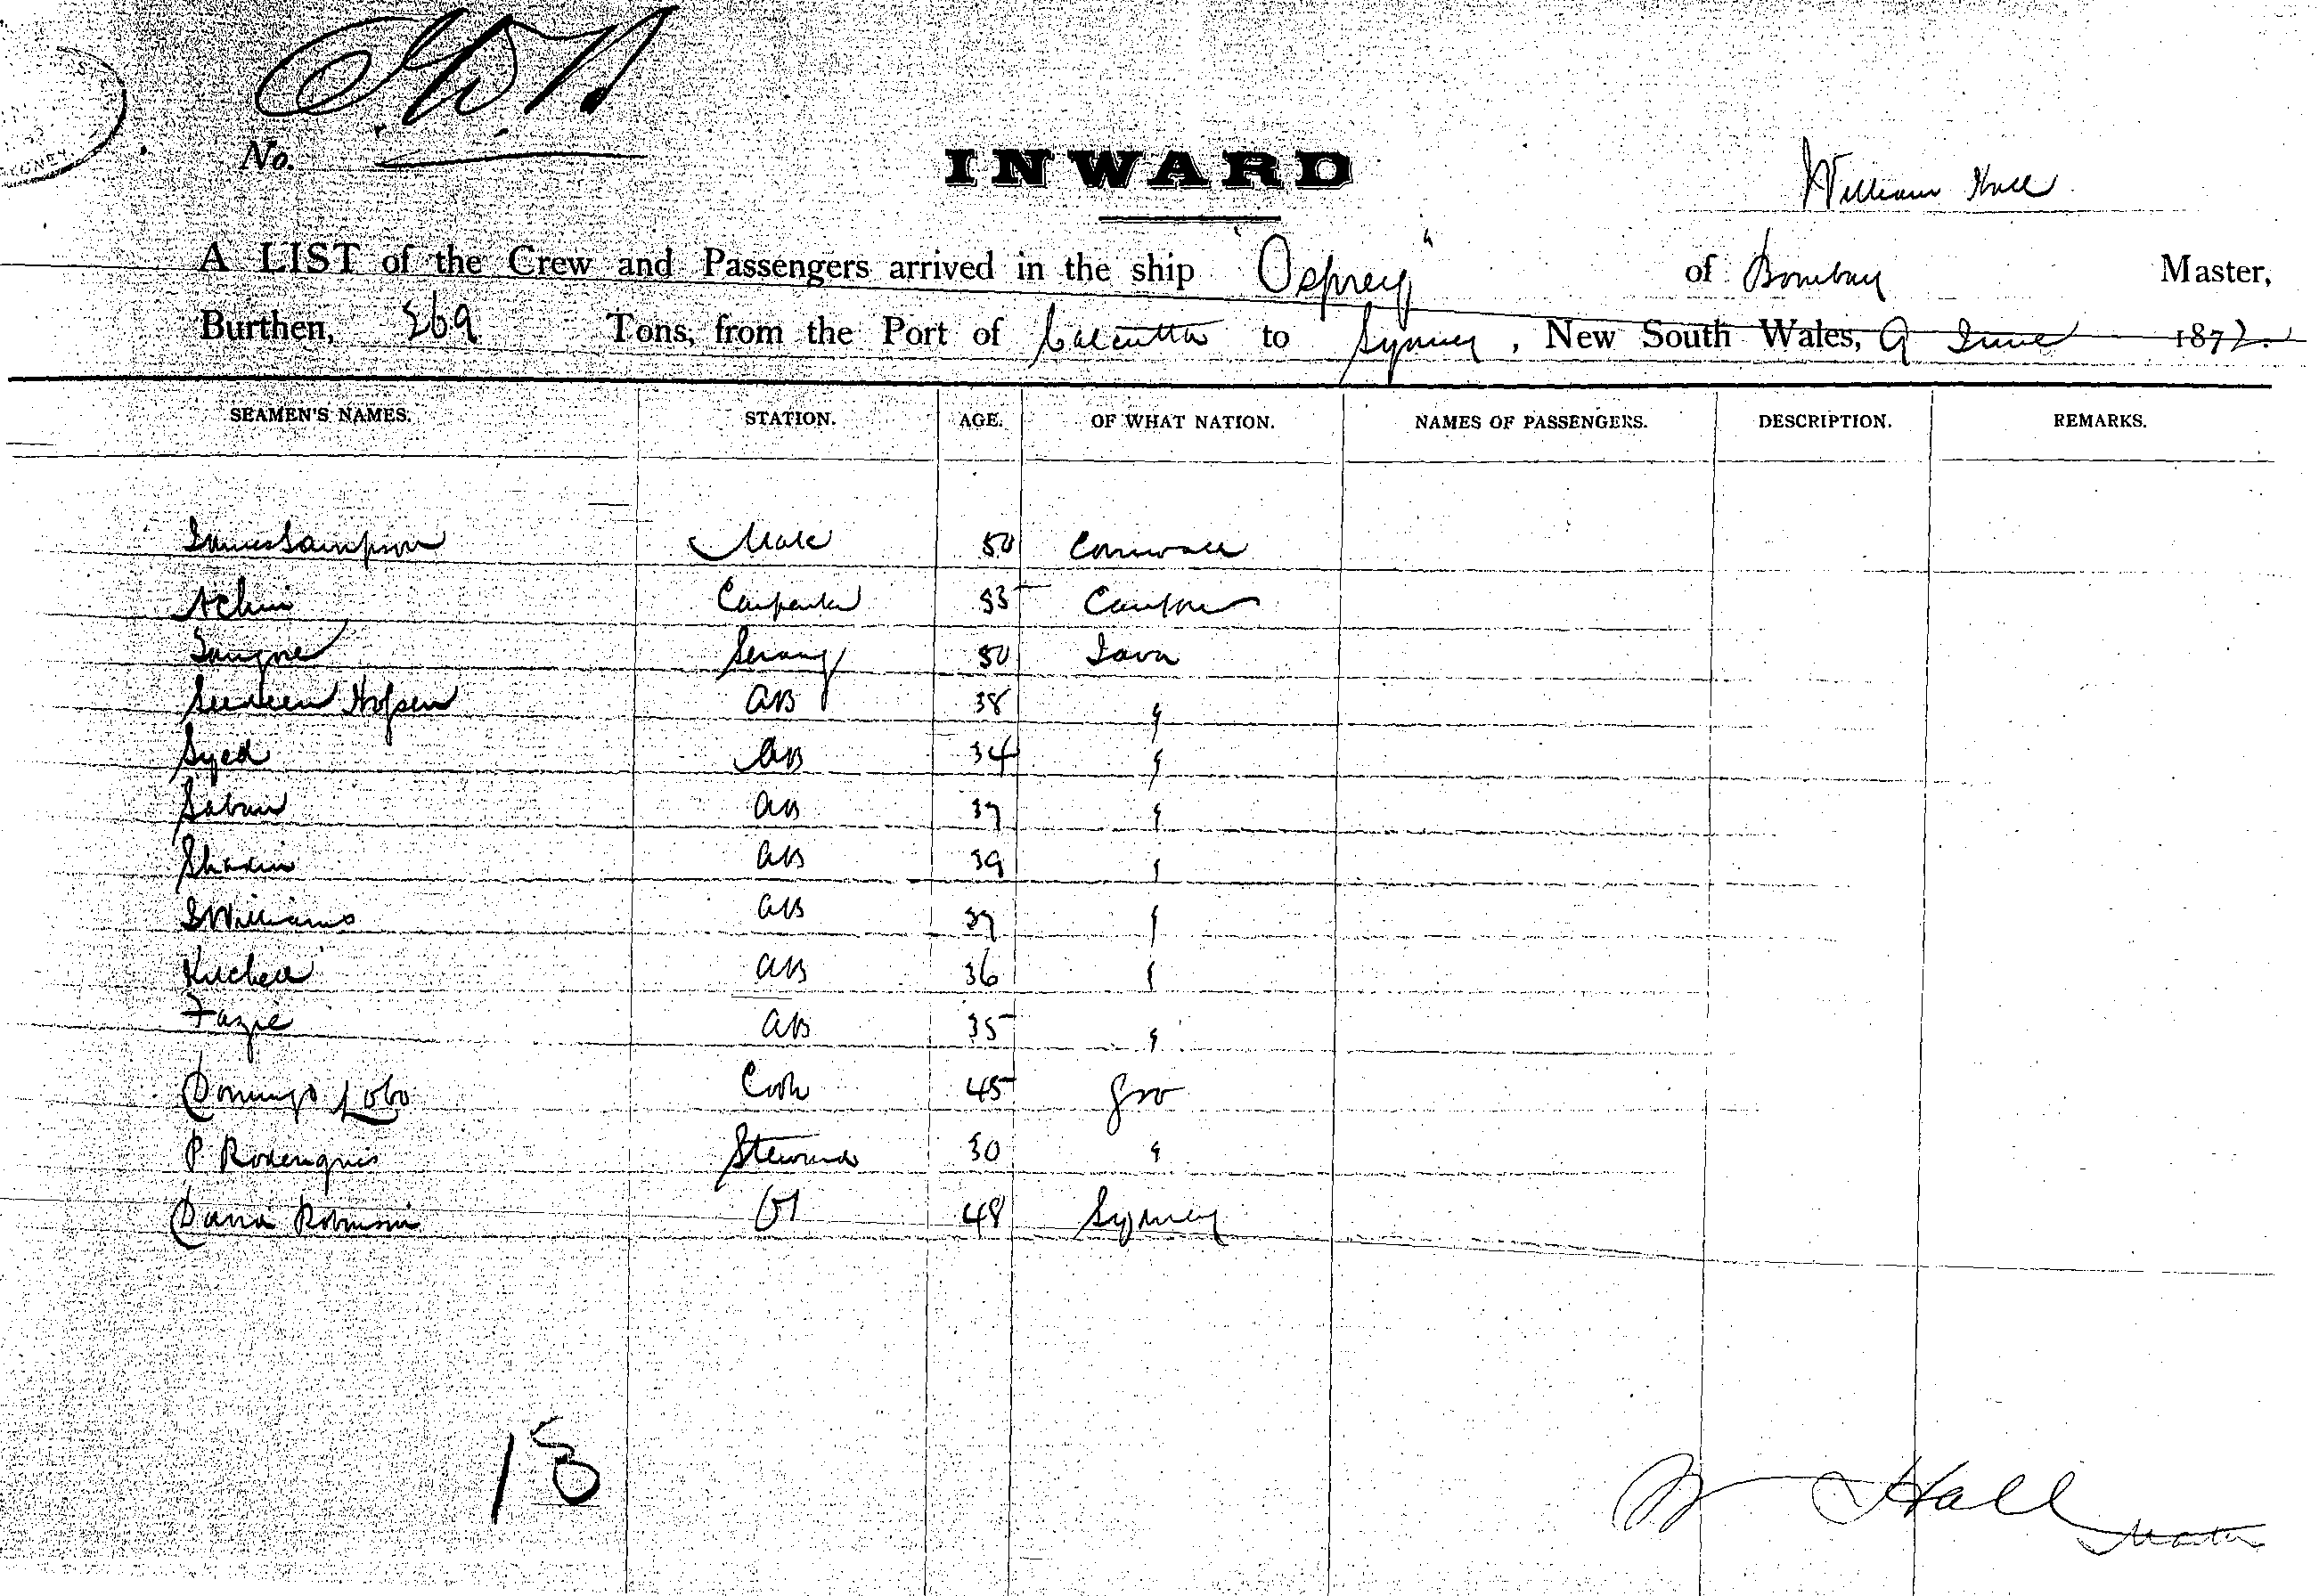 SYDNEY
No.
INWARD
William Hall
A LIST of the Crew and Passengers arrived in the ship "Osprey" of Bombay Master,
Burthen, 269 Tons, from the Port of Calcutta to Sydney, New South Wales, 9 June 1872.
SEAMEN'S NAMES. STATION. AGE. OF WHAT NATION. NAMES OF PASSENGERS. DESCRIPTION. REMARKS.
James Sampson Mate 50 Cornwall
Achin Carpenter 35 Canton
Serang 50 Java
AB 38 "
Syed AB 34 "
AB 37 "
AB 39 "
J Williams AB 37 "
AB 36 "
AB 35 "
Domingo Lobo Cook 45 Goa
P Roderiques Steward 30 "
David Robinson 48 Sydney
W Hall
Master